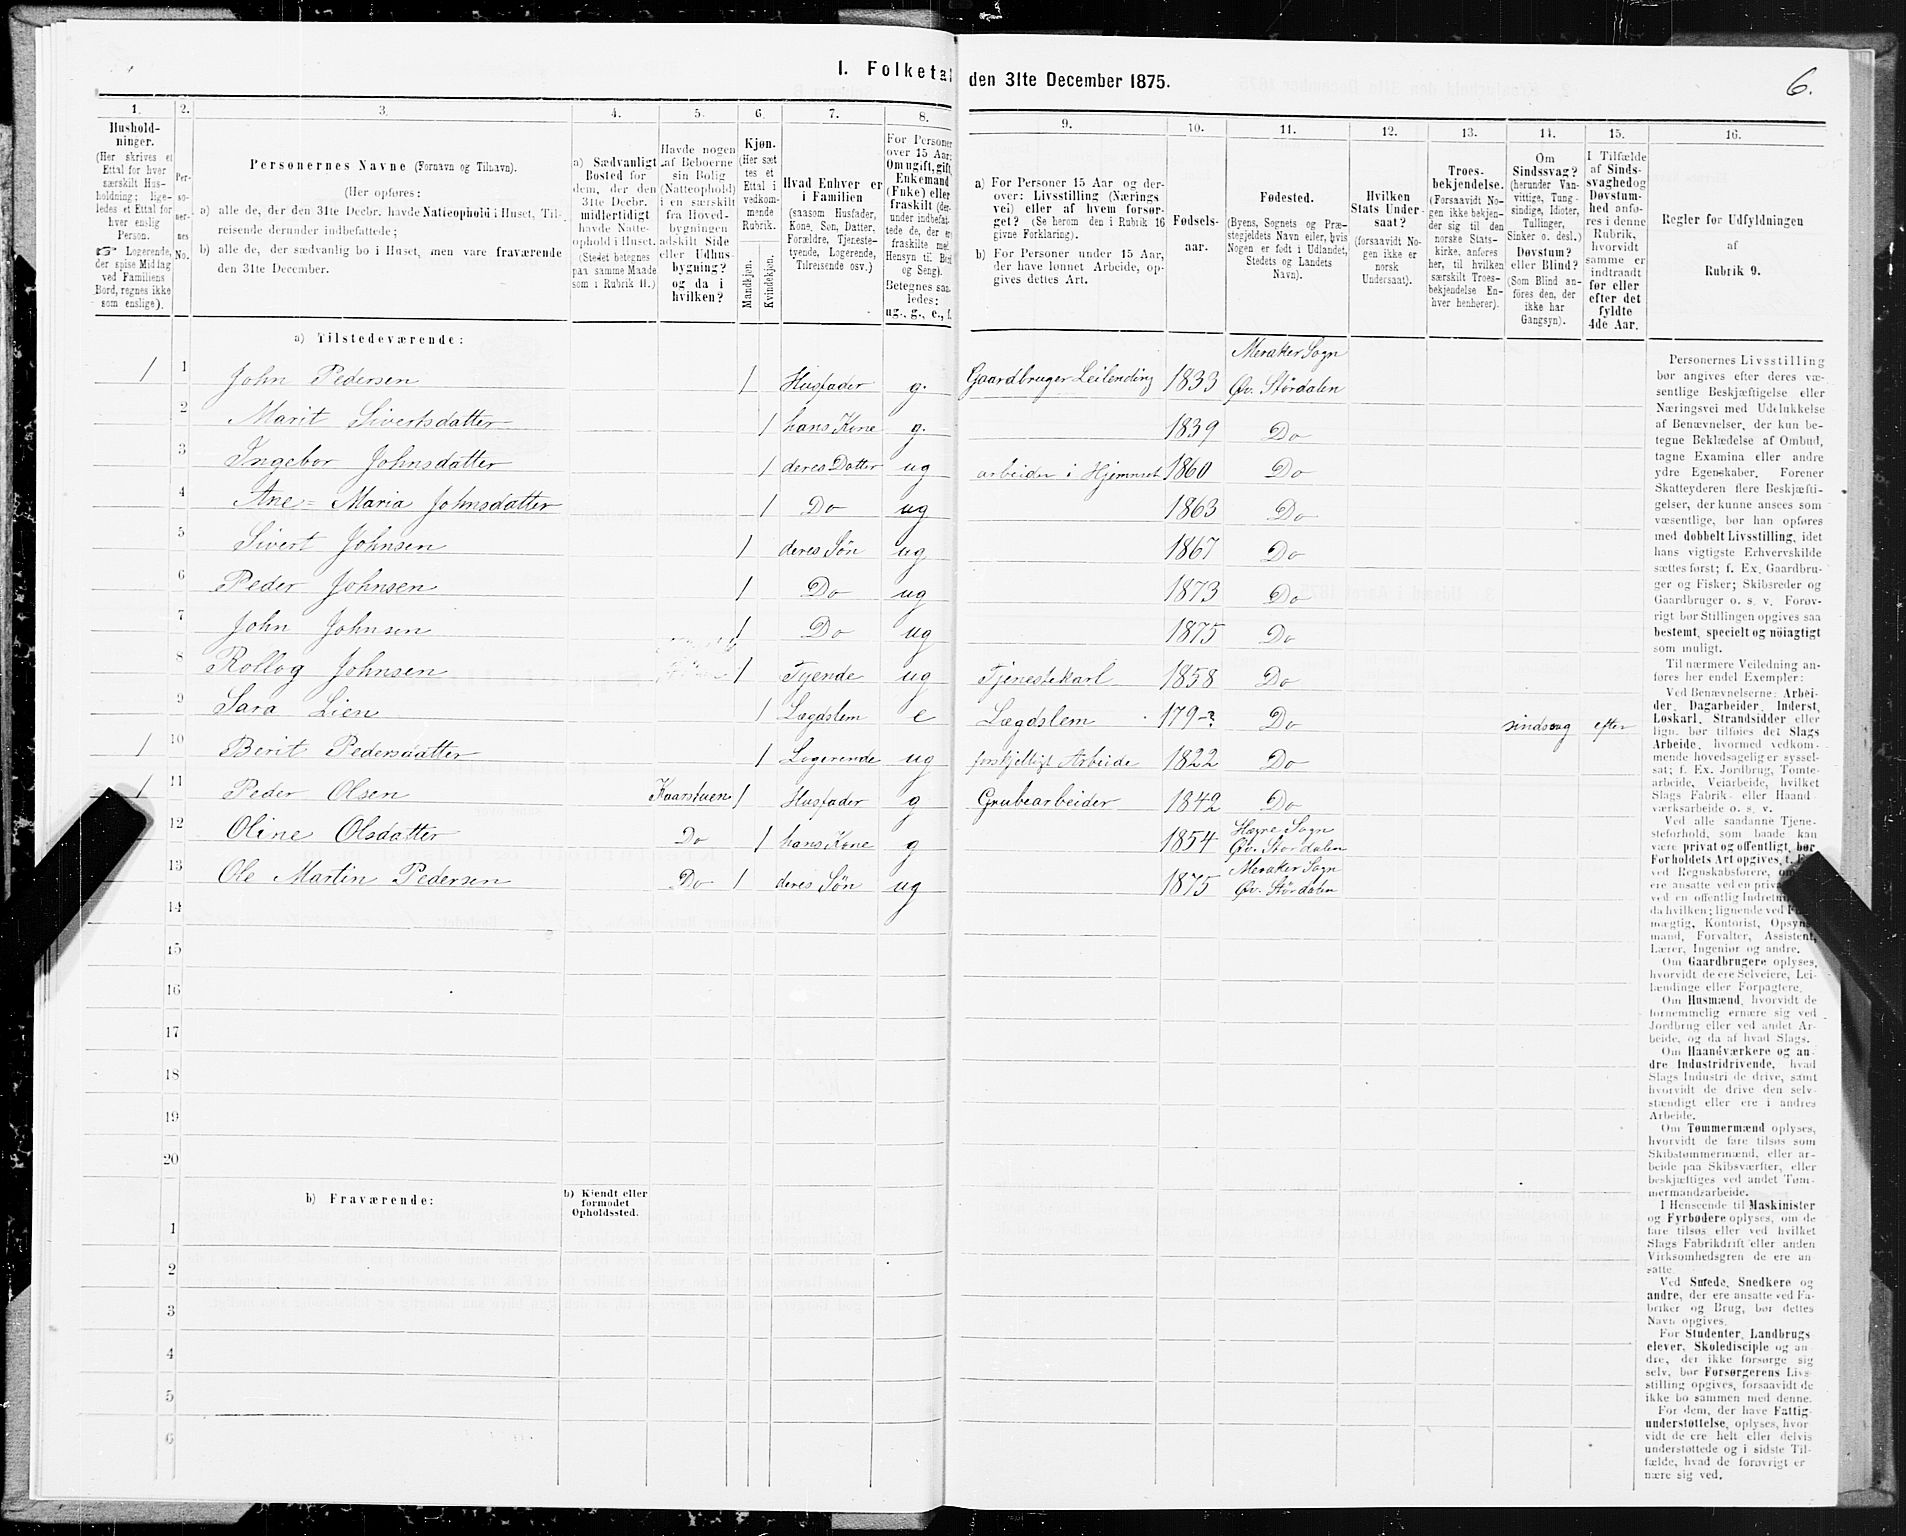 I. Folketal den 31te December 1875.
6.
1.
Hushold-
ninger.
(Her skrives et
Ettal for hver
særskilt Hus-
holdning; lige-
ledes et Ettal for
hver enslig
Person.
☞ Logerende,
der spise Middag
ved Familiens
Bord, regnes ikke
som enslige).
2.
Per-
so-
ner-
nes
No.
3.
Personernes Navne (Fornavn og Tilnavn).
(Her opføres:
a) alle de, der den 31te Decbr. havde Natteophold i Huset, Til-
reisende derunder indbefattede;
b) alle de, der sædvanlig bo i Huset, men vare fraværende
den 31te December.
4.
a) Sædvanligt
Bosted for
dem, der den
31te Decbr.
midlertidigt
havde Natte-
ophold i Huset.
(Stedet betegnes
paa samme Maade
som i Rubrik 11.)
5.
Havde nogen
af Beboerne
sin Bolig
(Natteophold)
i en særskilt
fra Hoved-
bygningen
adskilt Side
eller Udhus-
bygning?
og da i
hvilken?
6.
Kjøn.
(Her sæt-
tes et
Ettal i
vedkom-
mende
Rubrik.
Mandkjøn.
Kvindekjøn.
7.
Hvad Enhver er
i Familien
(saasom Husfader,
Kone, Søn, Datter,
Forældre, Tjeneste-
tyende, Logerende,
Tilreisende osv.)
8.
For Personer
over 15 Aar:
Om ugift, gift,
Enkemand
(Enke) eller
fraskilt (der-
under indbefat-
tede de, der er
fraskilte med
Hensyn til Bord
og Seng).
Betegnes saa-
ledes:
ug., g., e., f.
9.
a) For Personer 15 Aar og der-
over: Livsstilling (Nærings-
vei) eller af hvem forsør-
get? (Se herom den i Rubrik 16
givne Forklaring).
b) For Personer under 15 Aar,
der have lønnet Arbeide, op-
gives dettes Art.
10.
Fødsels-
aar.
11.
Fødested.
(Byens, Sognets og Præ-
stegjeldets Navn eller, hvis
Nogen er født i Udlandet,
Stedets og Landets
Navn).
12.
Hvilken
Stats Under-
saat?
(forsaavidt No-
gen ikke er
norsk
Undersaat).
13.
Troes-
bekjendelse.
(Forsaavidt No-
gen ikke bekjen-
der sig til den
norske Stats-
kirke, anføres
her, til hvilken
særskilt Troes-
bekjendelse En-
hver henhører).
14.
Om
Sindssvag?
(herunder Van-
vittige, Tung-
sindige, Idioter,
Tullinger,
Sinker o. desl.)
Døvstum?
eller Blind?
(Som Blind an-
føres den, der
ikke har
Gangsyn).
15.
I Tilfælde
af Sinds-
svaghed og
Døvstum-
hed anfø-
res i denne
Rubrik,
hvorvidt
samme er
indtraadt
før eller
efter det
fyldte
4de Aar.
16.
Regler for Udfyldningen
af
Rubrik 9.
a) Tilstedeværende:
1 1 John Pedersen 1 Husfader g. Gaardbruger Leilending 1833 Meraker Sogn
Øv. Størdalen
2 Marit Sivertsdatter 1 hans Kone g. 1839 Do
3 Ingebor Johnsdatter 1 deres Datter ug arbeider i Hjemmet 1860 Do
4 Ane= Maria Johnsdatter 1 Do ug 1863 Do
5 Sivert Johnsen 1 deres Søn ug 1867 Do
6 Peder Johnsen 1 Do ug 1873 Do
7 John Johnsen 1 Do ug 1875 Do
8 Rollog Johnsen 1 Tyende ug Tjenestekarl 1858 Do
9 Sara Lien 1 Lægdslem e Lægdslem 179-? Do sindsvag efter
1 10 Berit Pedersdatter 1 Logerende ug forskjelligt Arbeide 1822 Do
1 11 Peder Olsen Kaarstuen 1 Husfader g Grubearbeider 1842 Do
12 Oline Olsdatter Do 1 hans Kone g 1854 Hegre Sogn
Øv. Størdalen
13 Ole Martin Pedersen Do 1 deres Søn ug 1875 Meraker Sogn
Øv. Størdalen
14
15
16
17
18
19
20
b) Fraværende:
b) Kjendt eller
formodet
Opholdssted.
1
2
3
4
5
6
Personernes Livsstilling
bør angives efter deres væ-
sentlige Beskjæftigelse eller
Næringsvei med Udelukkelse
af Benævnelser, der kun be-
tegne Beklædelse af Ombud,
tagne Examina eller andre
ydre Egenskaber. Forener
Skatteyderen flere Beskjæfti-
gelser, der kunne ansees som
væsentlige, bør han opføres
med dobbelt Livsstilling, idet
hans vigtigste Erhvervskilde
sættes først; f. Ex. Gaardbru-
ger og Fisker; Skibsreder og
Gaardbruger o. s. v. Forøv-
rigt bør Stillingen opgives saa
bestemt, specielt og nøiagtigt
som muligt.
Til nærmere Veiledning an-
føres her endel Exempler:
Ved Benævnelserne: Arbei-
der, Dagarbeider, Inderst,
Løskarl, Strandsidder eller
lign. bør tilføies det Slags
Arbeide, hvormed vedkom-
mende hovedsagelig er syssel-
sat; f. Ex. Jordbrug, Tomte-
arbeide, Veiarbeide, hvilket
Slags Fabrik- eller Haand-
værksarbeide o. s. v.
Ved alle saadanne Tjene-
steforhold, som baade kan
være privat og offentligt, bør
Forholdets Art opgives, f. Ex.
ved Regnskabsførere, om de
ere ansatte ved en privat eller
ved en offentlig Indretning
da hvilken; lignende ved Fuld-
mægtig, Kontorist, Opsyns-
mand, Forvalter, Assistent,
Lærer, Ingeniør og andre.
Om Gaardbrugere oplyses,
hvorvidt de ere Selveiere, Lei-
lændinge eller Forpagtere.
Om Husmænd, hvorvidt de
fornemmelig ernære sig ved
Jordbrug eller ved andet Ar-
beide, og da af hvad Slags.
Om Haandværkere og an-
dre Industridrivende, hvad
Slags Industri de drive, samt
hvorvidt de drive den selv-
stændigt eller ere i andres
Arbeide.
Om Tømmermænd oplyses,
hvorvidt de fare tilsøs som
Skibstømmermænd, eller ar-
beide paa Skibsværfter, eller
beskjæftiges ved andet Tøm-
mermandsarbeide.
I Henseende til Maskinister
og Fyrbødere oplyses, om de
fare tilsøs eller ved hvilket
Slags Fabrikdrift eller anden
Virksomhedsgren de ere an-
satte.
Ved Smede, Snedkere og
andre, der ere ansatte ved Fa-
briker og Brug, bør dettes
Navn opgives.
For Studenter, Landbrugs-
elever, Skoledisciple og an-
dre, der ikke forsørge sig
selv, bør Forsørgerens Livs-
stilling opgives, forsaavidt de
ikke bo sammen med denne.
For dem, der have Fattig-
understøttelse, oplyses, hvor-
vidt de ere helt eller delvis
understøttede og i sidste Til-
fælde, hvad de forøvrigt er-
nære sig ved.